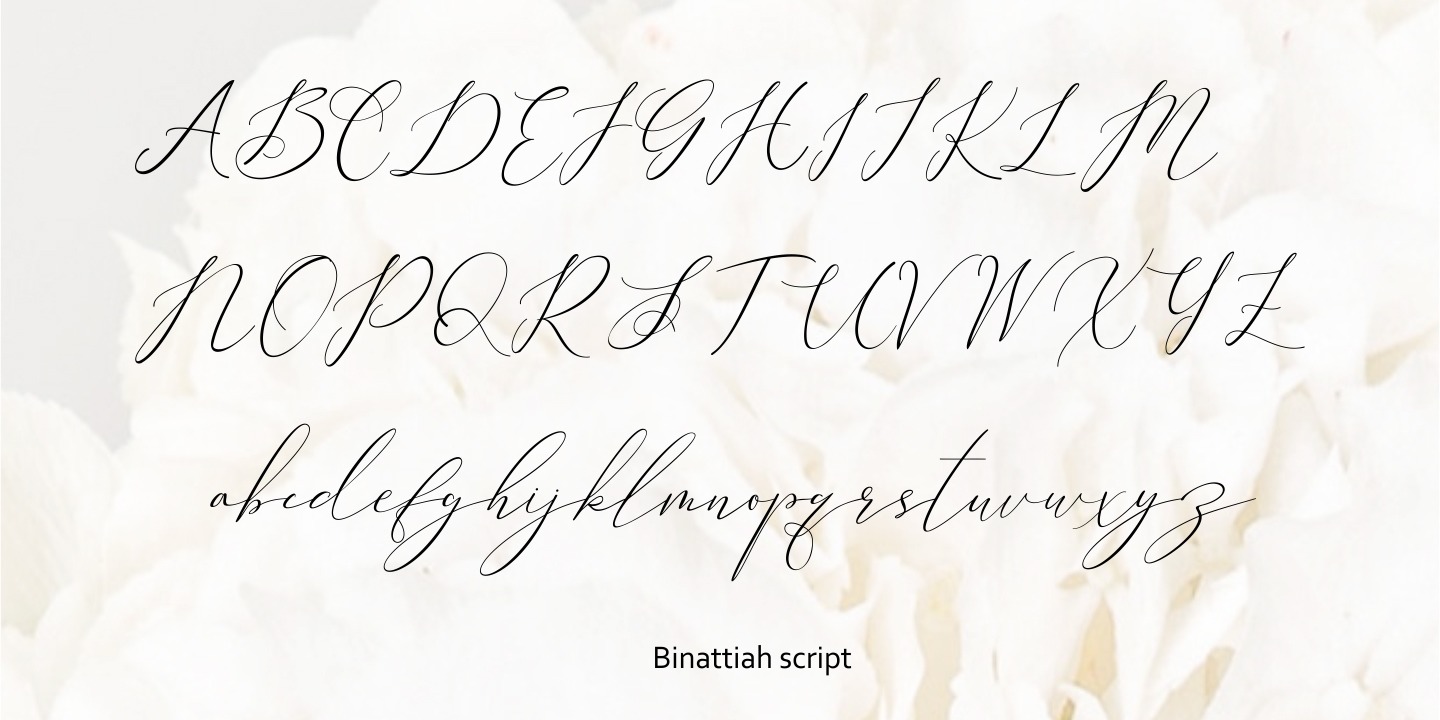 ABCDEFGHIJKLM
NOPQRSTUVWXYZ
abcdefghijklmnopqrstuvwxyz
Binattiah script